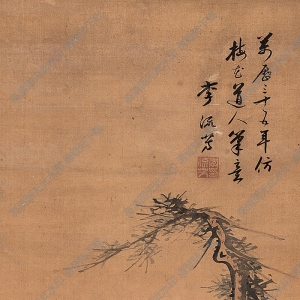 萬曆三十五年仿
梅花道人筆意
李流芳